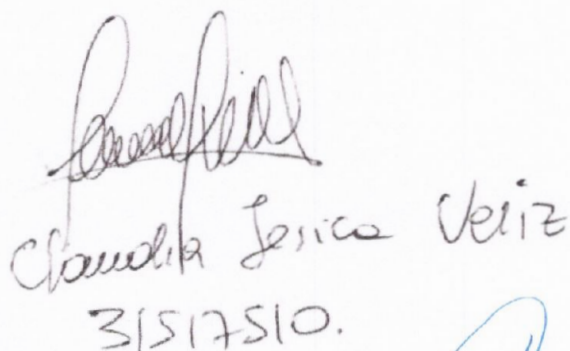 Claudia Jesica Veliz
31517510.